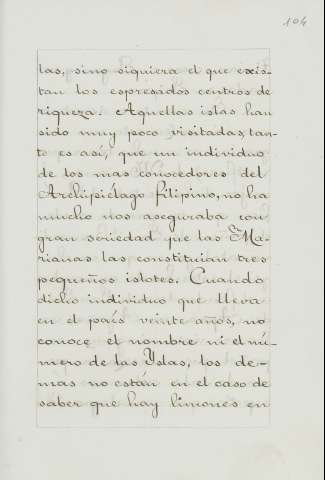 104
las, sino siquiera el que exis-
tan los espresados centros de
riqueza. Aquellas islas han
sido muy poco visitadas, tan-
to es así, que un individuo
de los mas conocedores del
Archipiélago filipino, no ha
mucho nos aseguraba con
gran seriedad que las Ma-
rianas las constituían tres
pequeños islotes. Cuando
dicho individuo que lleva
en el país veinte años, no
conoce el nombre ni el nú-
mero de las Yslas, los de-
mas no están en el caso de
saber que hay limones en